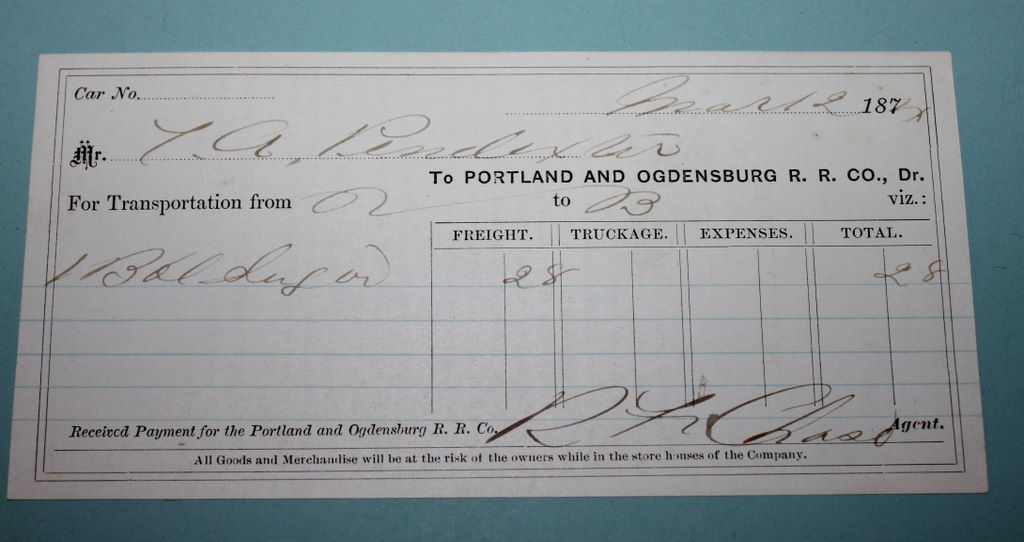 Car No.
Mar 12 187
Mr. A. Pendexter
To PORTLAND AND OGDENSBURG R. R. CO., Dr.
For Transportation from to B viz.:
FREIGHT. TRUCKAGE. EXPENSES. TOTAL.
1 Bbl Sugar 28 28
Received Payment for the Portland and Ogdensburg R. R. Co. R Chase Agent.
All Goods and Merchandise will be at the risk of the owners while in the store houses of the Company.